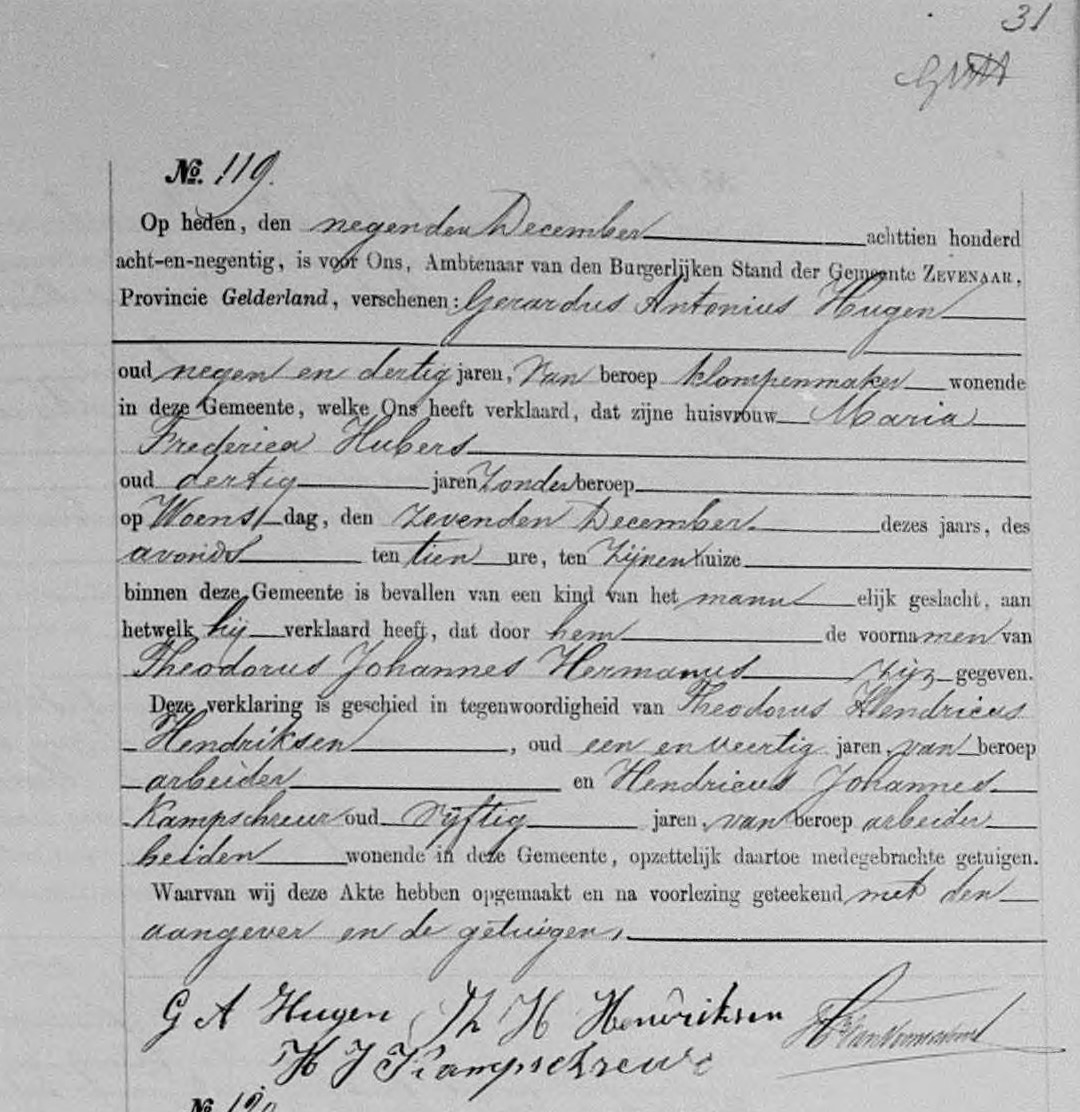 31
No. 119.
Op heden, den negenden December achttien honderd
acht-en-negentig, is voor Ons, Ambtenaar van den Burgerlijken Stand der Gemeente ZEVENAAR,
Provincie Gelderland, verschenen: Gerardus Antonius Hugen
oud negen en dertig jaren, van beroep klompenmaker wonende
in deze Gemeente, welke Ons heeft verklaard, dat zijne huisvrouw Maria
Frederica Hubers
oud dertig jaren zonder beroep
op Woensdag, den zevenden December dezes jaars, des
avonds ten tien ure, ten zijnen huize
binnen deze Gemeente is bevallen van een kind van het mannelijk geslacht, aan
hetwelk hij verklaard heeft, dat door hem de voornamen van
Theodorus Johannes Hermanus zijn gegeven.
Deze verklaring is geschied in tegenwoordigheid van Theodorus Hendricus
Hendriksen, oud een en veertig jaren, van beroep
arbeider en Hendricus Johannes
Kampschreur oud vijftig jaren, van beroep arbeider
beiden wonende in deze Gemeente, opzettelijk daartoe medegebrachte getuigen.
Waarvan wij deze Akte hebben opgemaakt en na voorlezing geteekend met den
aangever en de getuigen.
G A Hugen Th H Hendriksen
H J Kampschreur
No. 120